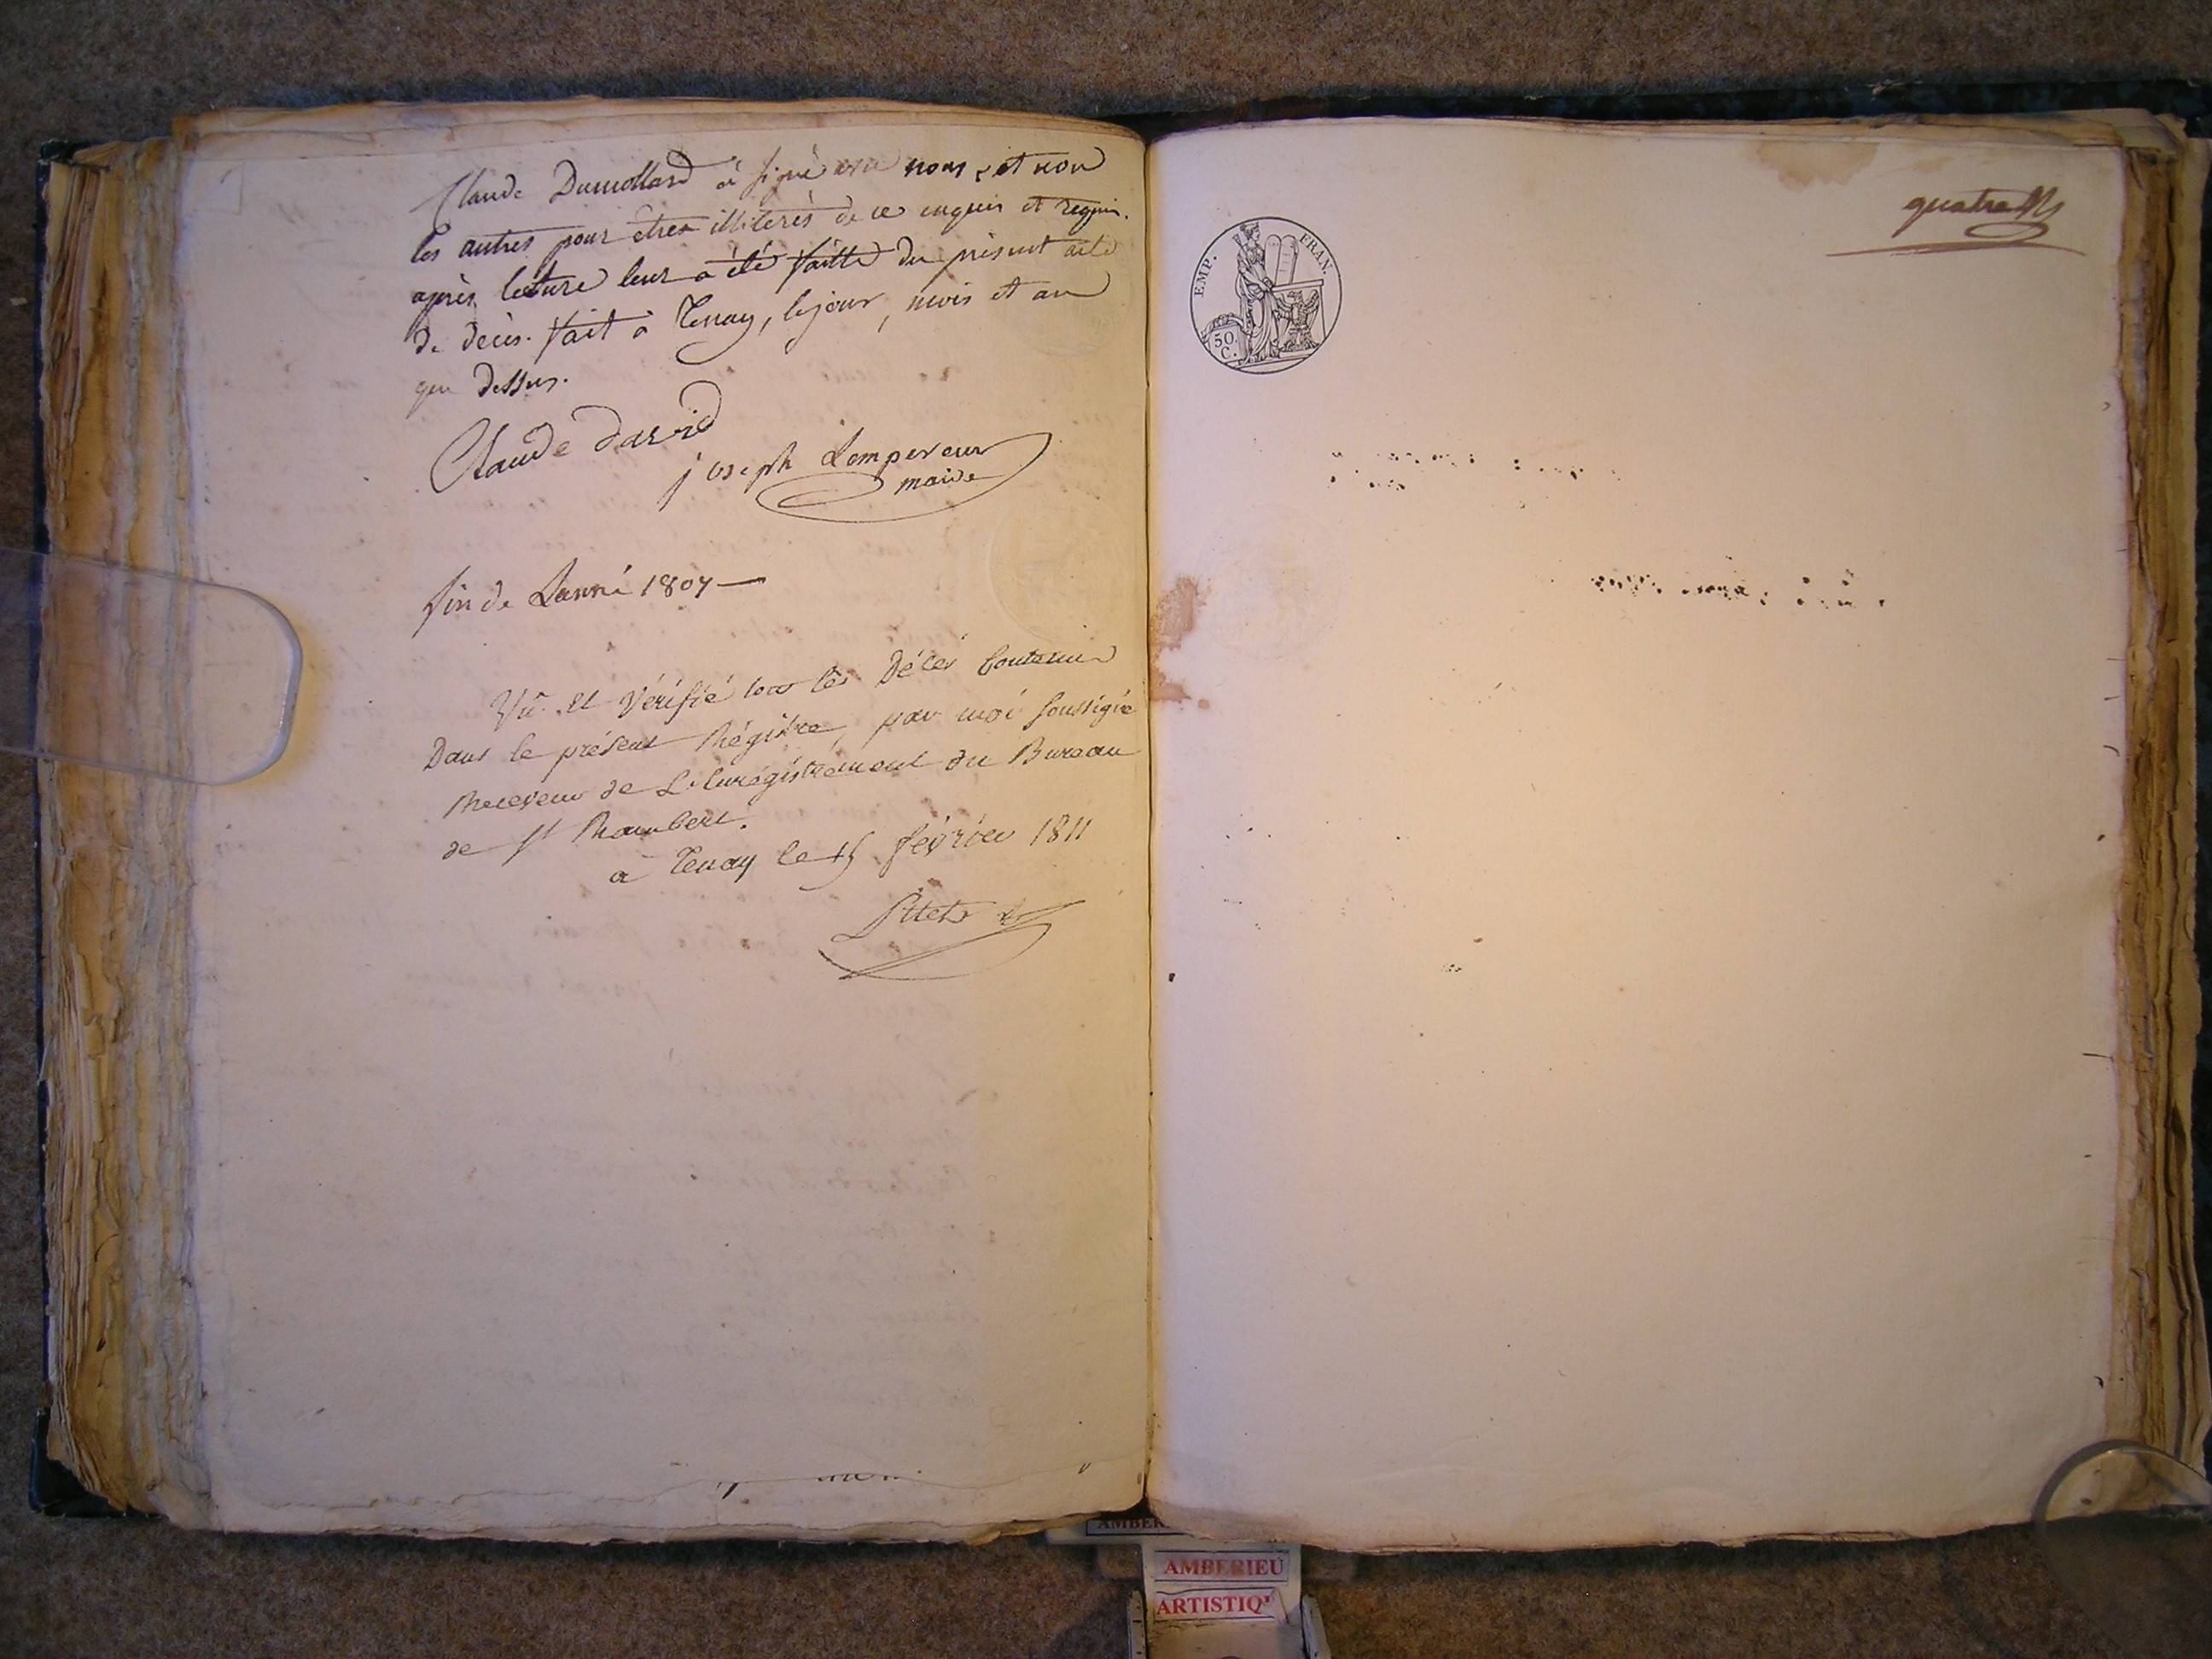 Claude Dumollard à signé avec nous, et non
les autres pour etres illiterés de ce enquis et requis.
après lecture leur a été faitte du présent acte
de décès. fait à Tenay, le jour, mois et an
que dessus.
Claude david
joseph Lempereur
maire
fin de Lanné 1807
Vû et Vérifié tous les Décès Contenus
Dans le présent Régistre, par moi soussigné
Receveur de L'Enrégistrement du Bureau
de St Rambert.
a Tenay le 15 février 1811
quatre
EMP. FRAN.
50 C.
AMBERIEU
ARTISTIQ